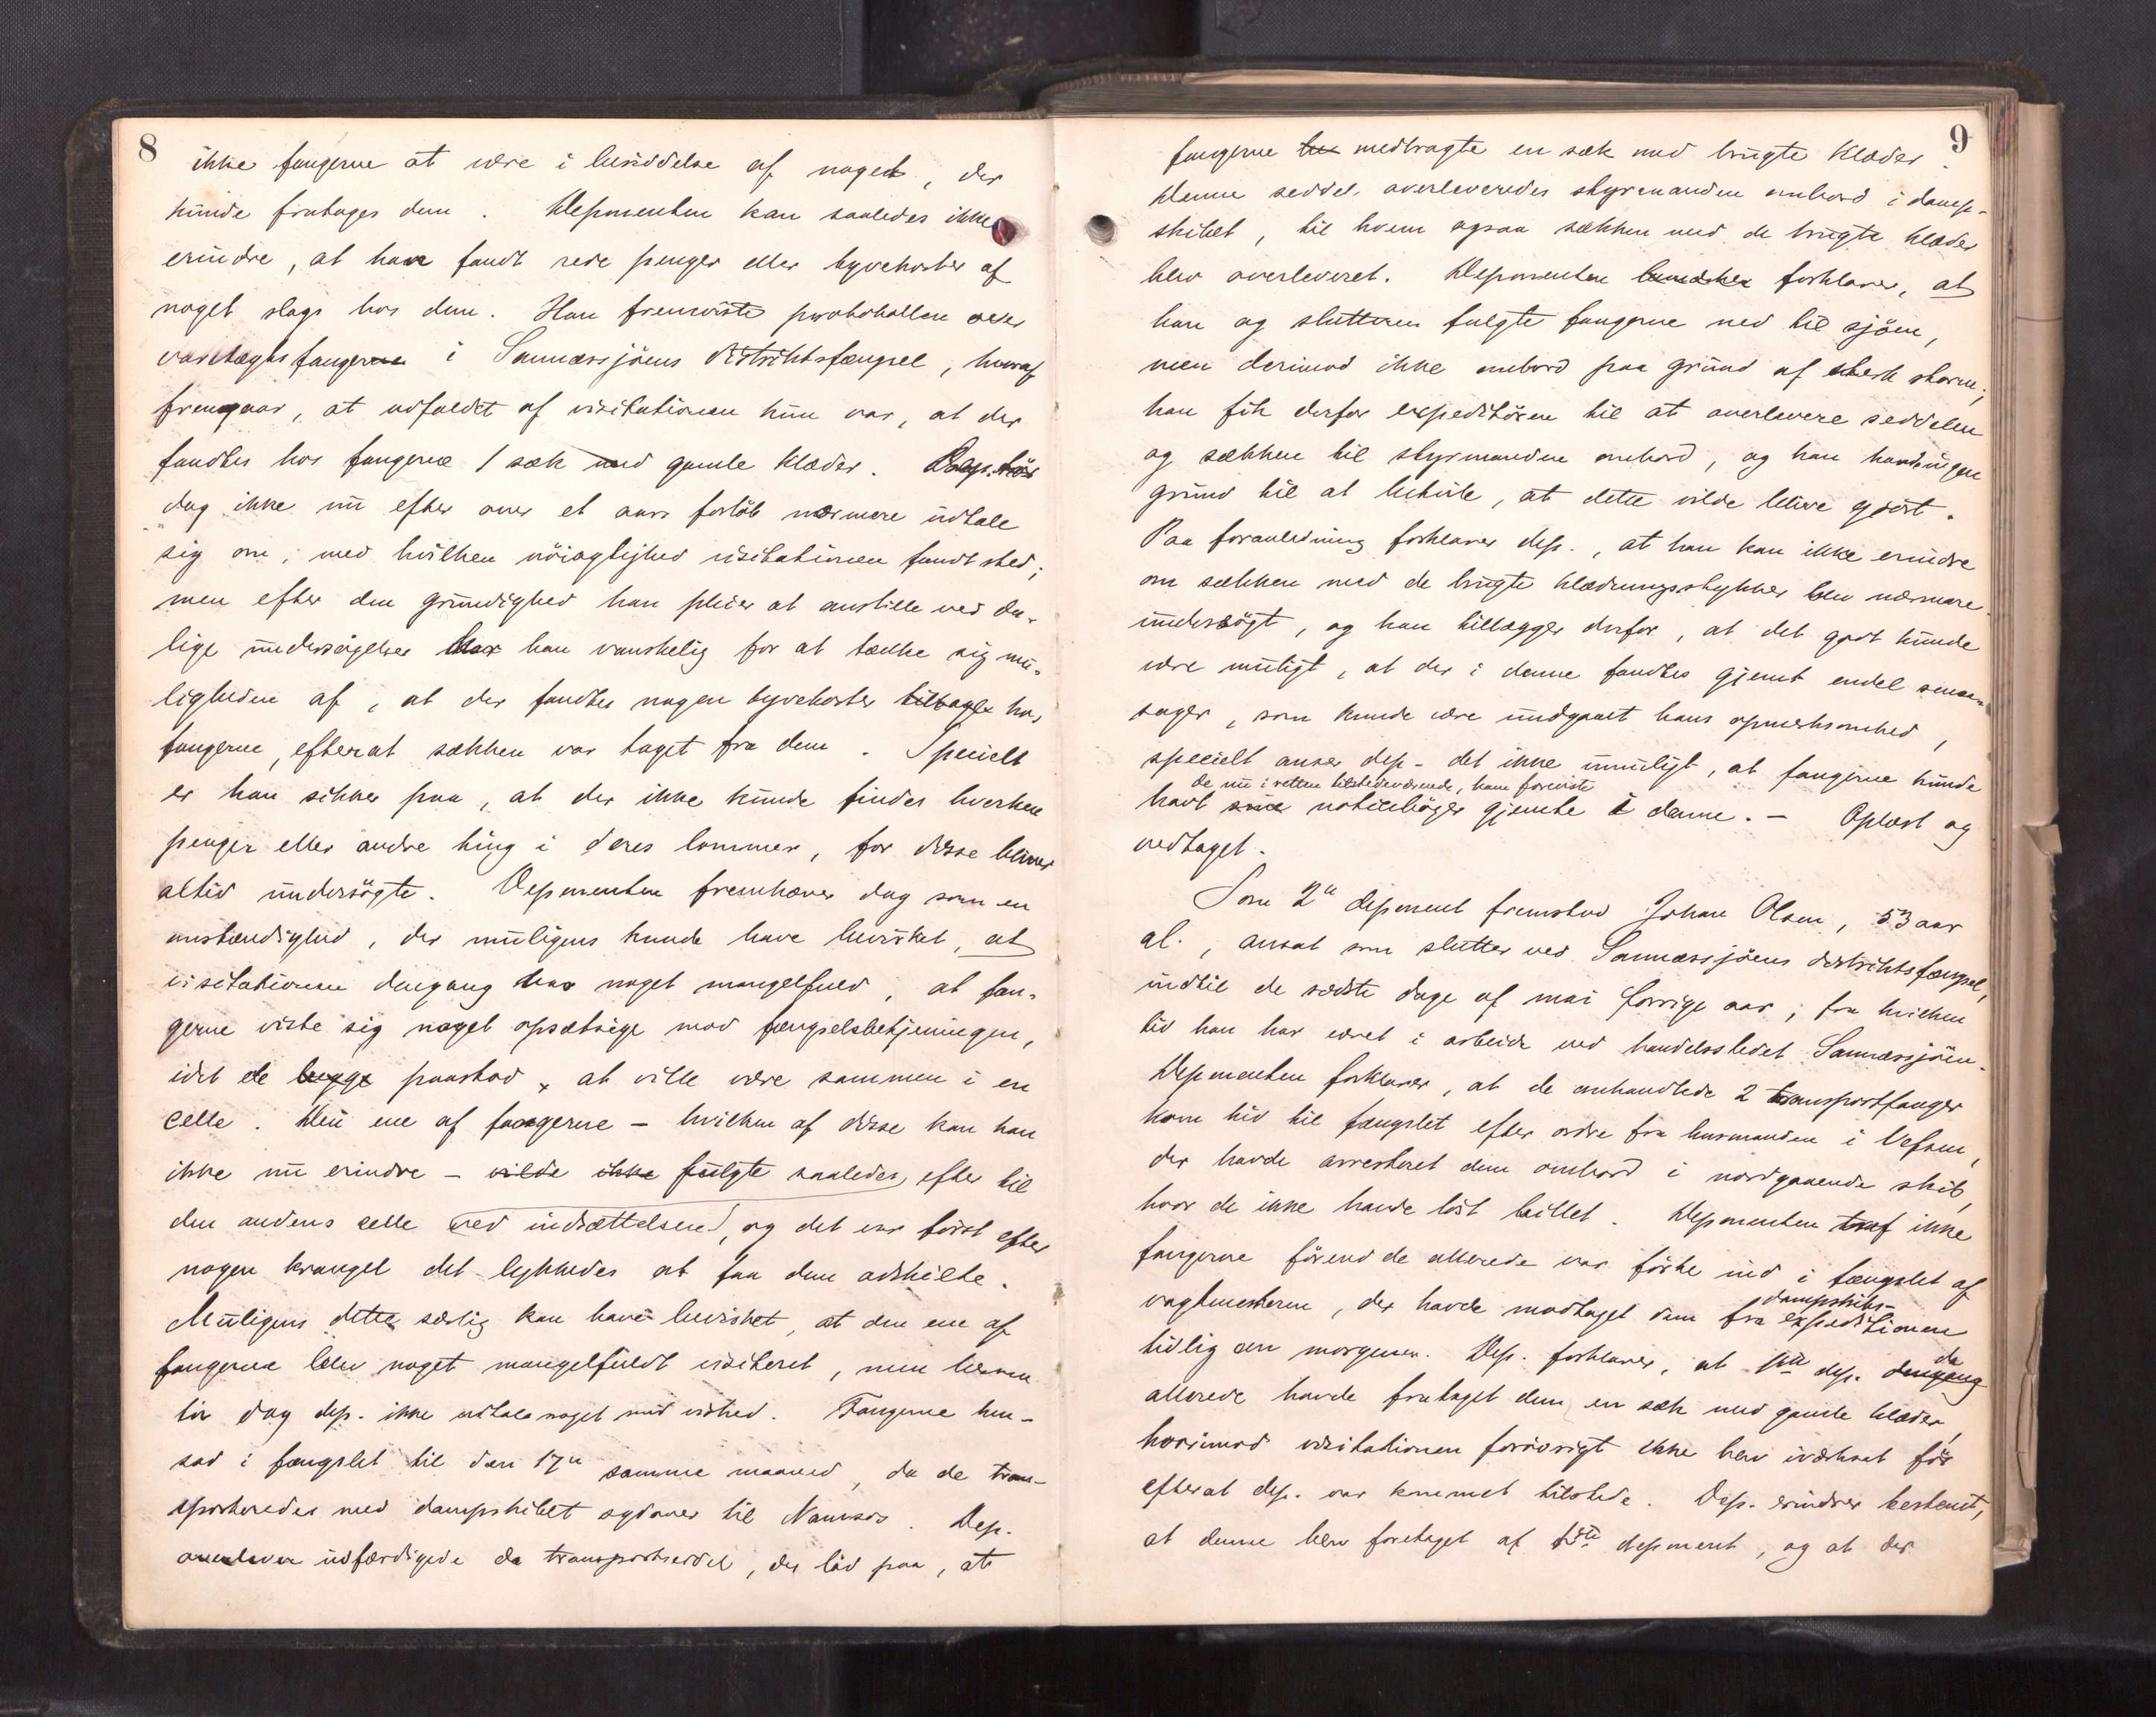 8
ikke fangerne at være i besiddelse af noget, der
kunde fratages dem. Deponenten kan saaledes ikke
erindre, at have fandt rede penger eller tyvekoster af
noget slags hos dem. Han fremviste protokollen over
varetægtsfangerne i Sannæssjöens distriktsfængsel, hvoraf
fremgaar, at udfaldet af visitationen kun var, at der
fandtes hos fangerne 1 sæk med gamle klæder. Dep. tör
dog ikke nu efter over et aars forlöb nærmere udtale
sig om, med hvilken nöiagtighed visitationen fandt sted;
men efter den grundighed han pleier at anstille ved da-
lige undersögelser har han vanskelig for at tænke sig mu-
ligheden af, at der fandtes nogen tyvekoster tilbage hos
fangerne, efterat sækken var taget fra dem. Specielt
er han sikker paa, at der ikke kunde findes hverken
penger eller andre ting i deres lommer, for disse bliver
altid undersögte. Deponenten fremhæver dog som en
omstændighed, der muligens kunde have bevirket, at
visitationen dengang var noget mangelfuld, at fan-
gerne viste sig noget opsætsige mod fængselsbetjeningen,
idet de begge paastod, at ville være sammen i en
celle. Den ene af fangerne - hvilken af disse kan han
ikke nu erindre - vilde ikke fulgte saaledes efter til
den andens celle ved indsættelsen, og det var först efter
nogen krangel det lykkedes at faa dem adskilte.
Muligens dette særlig kan have bevirket, at den ene af
fangerne blev noget mangelfuldt visiteret, men herom
tör dog dep. ikke udtale noget med vished. Fangerne hen-
sad i fængslet til den 17de samme maaned, da de tran-
sporteredes med dampskibet sydover til Namsos. Dep.
udfærdigede da transportseddel, der löd paa, at
9
fangerne medbragte en sæk med brugte klæder.
Denne seddel overleveredes styrmanden ombord i damp-
skibet, til hvem ogsaa sækken med de brugte klæder
blev overleveret. Deponenten forklarer, at
han og slutteren fulgte fangerne ned til sjöen,
men derimod ikke ombord paa grund af sterk storm;
han fik derfor expeditören til at overlevere seddelen
og sækken til styrmanden ombord, og han havde ingen
grund til at betvile, at dette vilde blive gjort.
Paa foranledning forklarer dep., at han kan ikke erindre
om sækken med de brugte klædningsstykker blev nærmere
undersögt, og han tillægger derfor, at det godt kunde
være muligt, at der i denne fandtes gjemt endel smaa-
sager, som kunde være undgaaet hans opmerksomhed,
specielt anser dep. det ikke umuligt, at fangerne kunde
de nu i retten tilstedeværende, ham foreviste
havt sine noticeböger gjemte i denne. - Oplæst og
vedtaget.
Som 2de deponent fremstod Johan Olsen, 53 aar
gl., ansat som slutter ved Sannæssjöens distriktsfængsel,
indtil de sidste dage af mai forrige aar, fra hvilken
tid han har været i arbeide ved handelsstedet Sannæssjöen.
Deponenten forklarer, at de omhandlede 2 transportfanger
kom hid til fængslet efter ordre fra lensmanden i Vefsen,
der havde arresteret dem ombord i nordgaaende skib,
hvor de ikke havde löst billet. Deponenten traf ikke
fangerne förend de allerede var förte ind i fængslet af
vagtmesteren, der havde modtaget dem fra
dampskibs-
expeditionen
tidlig om morgenen. Dep. forklarer, at 1ste dep. dengang
da
allerede havde frataget dem en sæk med gamle klæder,
hvorimod visitationen forövrigt ikke blev iværksat för
efterat dep. var kommet tilstede. Dep. erindrer bestemt,
at denne blev foretaget af 1ste deponent, og at der